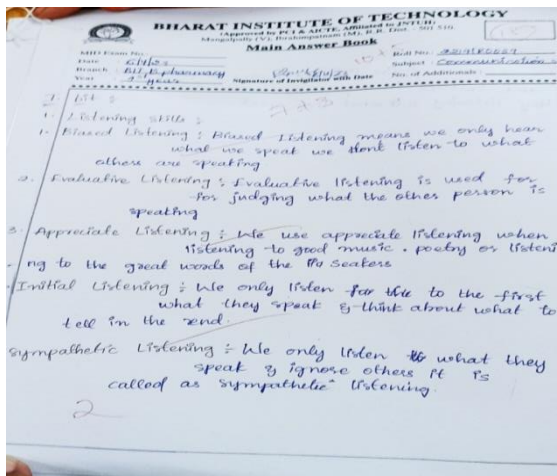 BHARAT INSTITUTE OF TECHNOLOGY
(Approved by PCI & AICTE, Affiliated to JNTUH)
Mangalpally (V), Ibrahimpatnam (M), R.R. Dist. - 501 510
Main Answer Book
MID Exam No.:
Roll No.:
Date
Subject : Communication
Branch : B.pharmacy
Signature of Invigilator with Date
No. of Additionals :
Year
1. Listening Skills :
1. Biased Listening : Biased Listening means we only hear
what we speak we dont listen to what
others are speaking
2. Evaluative Listening : Evaluative listening is used for
for judging what the other person is
speating
3. Appreciate Listening : We use appreciate listening when
listening to good music. poetry or listeni
- ng to the great words of the Seakers
Initial Listening : We only listen to the first
what they speak & think about what to
tell in the end.
Sympathetic Listening : We only listen what they
speak & ignore others it is
called as Sympathetic listening.
2